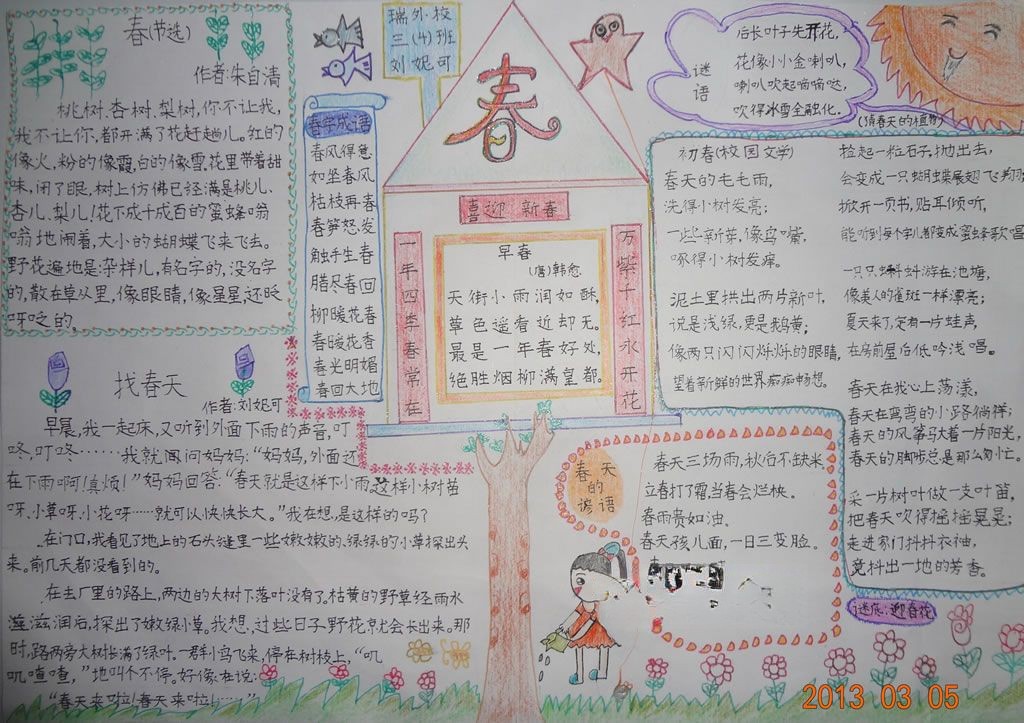 春(节选)
作者:朱自清
桃树、杏树、梨树,你不让我,
我不让你,都开满了花赶趟儿。红的
像火,粉的像霞,白的像雪。花里带着甜
味,闭了眼,树上仿佛已经满是桃儿、
杏儿、梨儿!花下成千成百的蜜蜂嗡
嗡地闹着,大小的蝴蝶飞来飞去。
野花遍地是:杂样儿,有名字的,没名字
的,散在草丛里,像眼睛,像星星还眨
呀眨的。
找春天
作者:刘妮可
早晨,我一起床,又听到外面下雨的声音,叮
咚,叮咚……我就闻问妈妈:“妈妈,外面还
在下雨啊!真烦!”妈妈回答:“春天就是这样下小雨,这样小树苗
呀、小草呀、小花呀……就可以快快长大。”我在想,是这样的吗?
在门口,我看见了地上的石头缝里一些嫩嫩的、绿绿的小草探出头
来。前几天都没看到的。
在去厂里的路上,两边的大树下落叶没有了。枯黄的野草经雨水
滋润后,探出了嫩绿小草。我想,过些日子,野花就会长出来。那
时,路两旁大树挂满了绿叶。一群小鸟飞来,停在树枝上,“叽
叽喳喳,”地叫个不停。好像在说:
“春天来啦!春天来啦!……”
瑞外校
三(4)班
刘妮可
春字成语
春风得意
如坐春风
枯枝再春
春笋怒发
触手生春
腊尽春回
柳暖花春
春暖花香
春光明媚
春回大地
春
喜迎新春
一年四季春常在
万紫千红永开花
早春
(唐)韩愈
天街小雨润如酥,
草色遥看近却无。
最是一年春好处,
绝胜烟柳满皇都。
谜语
后长叶子先开花,
花像小小金喇叭,
喇叭吹起嘀嘀哒,
吹得冰雪全融化。
(猜春天的植物)
初春(校园文学)
春天的毛毛雨,
洗得小树发亮;
一些新芽,像鸟嘴,
啄得小树发痒。
泥土里拱出两片新叶,
说是浅绿,更是鹅黄;
像两只闪闪烁烁的眼睛,
望着新鲜的世界痴痴畅想。
捡起一粒石子,抛出去,
会变成一只蝴蝶展翅飞翔;
掀开一页书,贴耳倾听,
能听到每个字儿都变成蜜蜂歌唱
一只只蝌蚪游在池塘,
像美人的雀斑一样漂亮;
夏天来了,定有一片蛙声,
在房前屋后低吟浅唱。
春天在我心上荡漾,
春天在弯弯的小路徜徉;
春天的风筝驮着一片阳光,
春天的脚步总是那么匆忙。
采一片树叶做一支叶笛,
把春天吹得摇摇晃晃;
走进家门抖抖衣袖,
竟抖出一地的芳香。
谜底:迎春花
春天
的
谚语
春天三场雨,秋后不缺米。
立春打了霜,当春会烂秧。
春雨贵如油。
春天孩儿面,一日三变脸。
2013 03 05